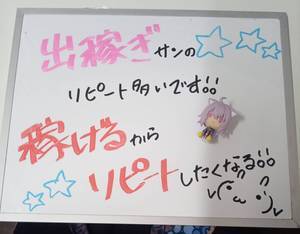 出稼ぎサンの☆☆☆
リピート多いです!!
稼げるから
リピートしたくなる!!
☆☆☆ v(´ω`)v